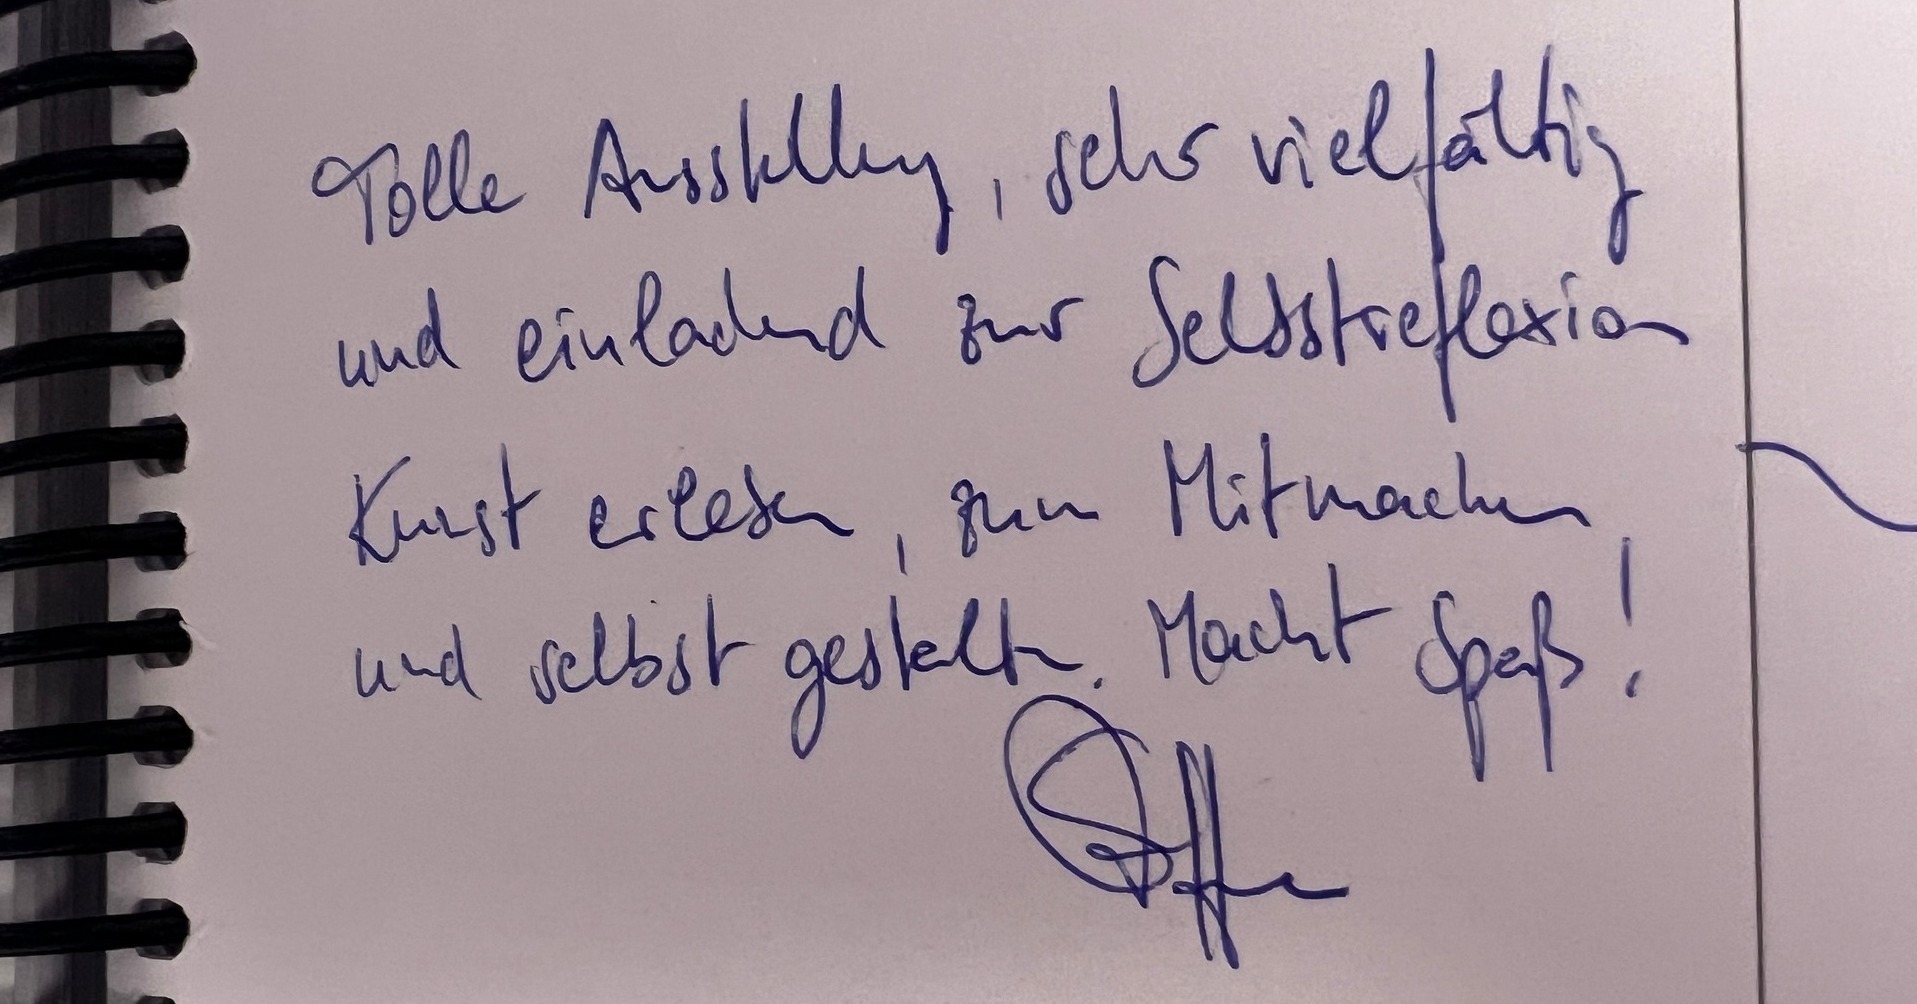 Tolle Ausstellung, sehr vielfältig
und einladend zur Selbstreflexion
Kunst erleben, zum Mitmachen
und selbst gestalten. Macht Spaß!